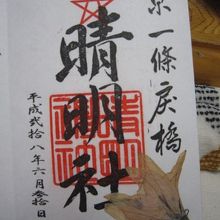 京一條戻橋
晴明社
平成弐拾八年六月参拾日